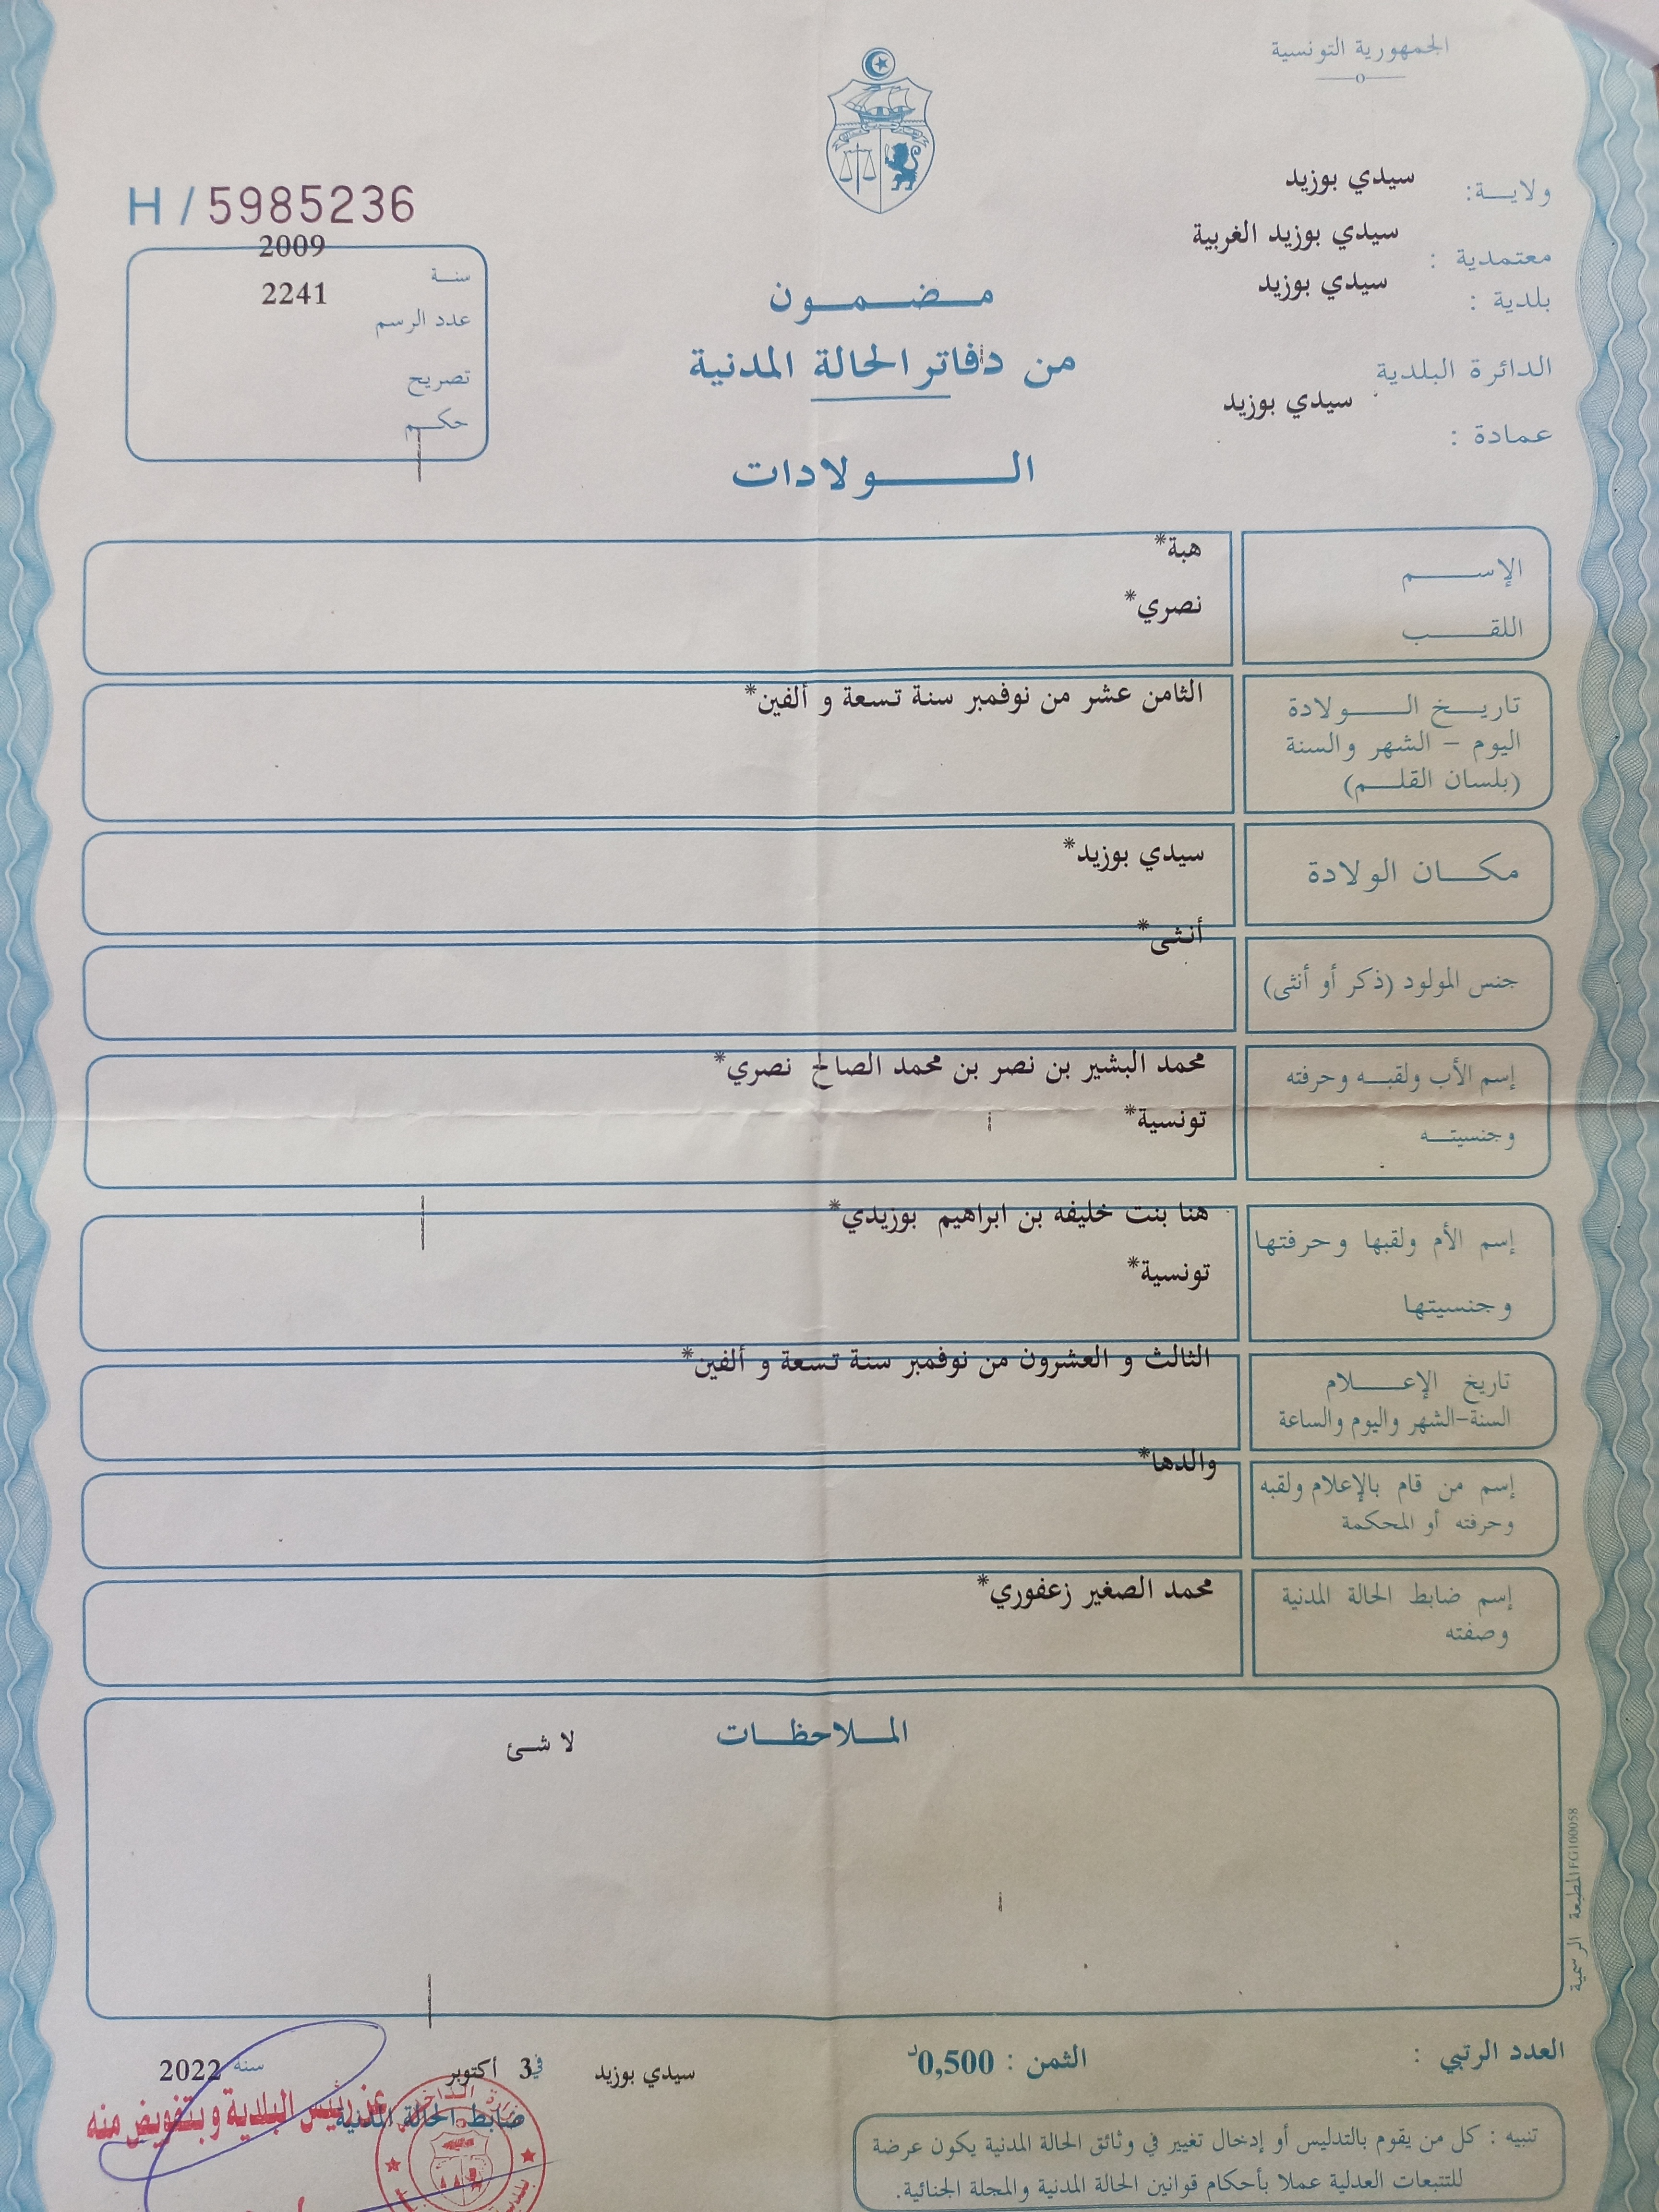 الجمهورية التونسية
ولاية: سيدي بوزيد
معتمدية : سيدي بوزيد الغربية
بلدية : سيدي بوزيد
الدائرة البلدية
سيدي بوزيد
عمادة :
H / 5985236
سنة 2009
عدد الرسم 2241
تصريح
حكم
مضمون
من دفاتر الحالة المدنية
الولادات
الإسم هبة*
اللقب نصري*
تاريخ الولادة الثامن عشر من نوفمبر سنة تسعة و ألفين*
اليوم - الشهر والسنة
(بلسان القلم)
مكان الولادة سيدي بوزيد*
جنس المولود (ذكر أو أنثى) أنثى*
إسم الأب ولقبه وحرفته محمد البشير بن نصر بن محمد الصالح نصري*
وجنسيته تونسية*
إسم الأم ولقبها وحرفتها هنا بنت خليفه بن ابراهيم بوزيدي*
وجنسيتها تونسية*
تاريخ الإعلام الثالث و العشرون من نوفمبر سنة تسعة و ألفين*
السنة-الشهر واليوم والساعة
إسم من قام بالإعلام ولقبه والدها*
وحرفته أو المحكمة
إسم ضابط الحالة المدنية محمد الصغير زعفوري*
وصفته
الملاحظات
لا شئ
المطبعة الرسمية FG100058
العدد الرتبي :
الثمن : 0,500د
سيدي بوزيد في 3 أكتوبر سنة 2022
ضابط الحالة المدنية
عن رئيس البلدية وبتفويض منه
تنبيه : كل من يقوم بالتدليس أو إدخال تغيير في وثائق الحالة المدنية يكون عرضة
للتتبعات العدلية عملا بأحكام قوانين الحالة المدنية والمجلة الجنائية.